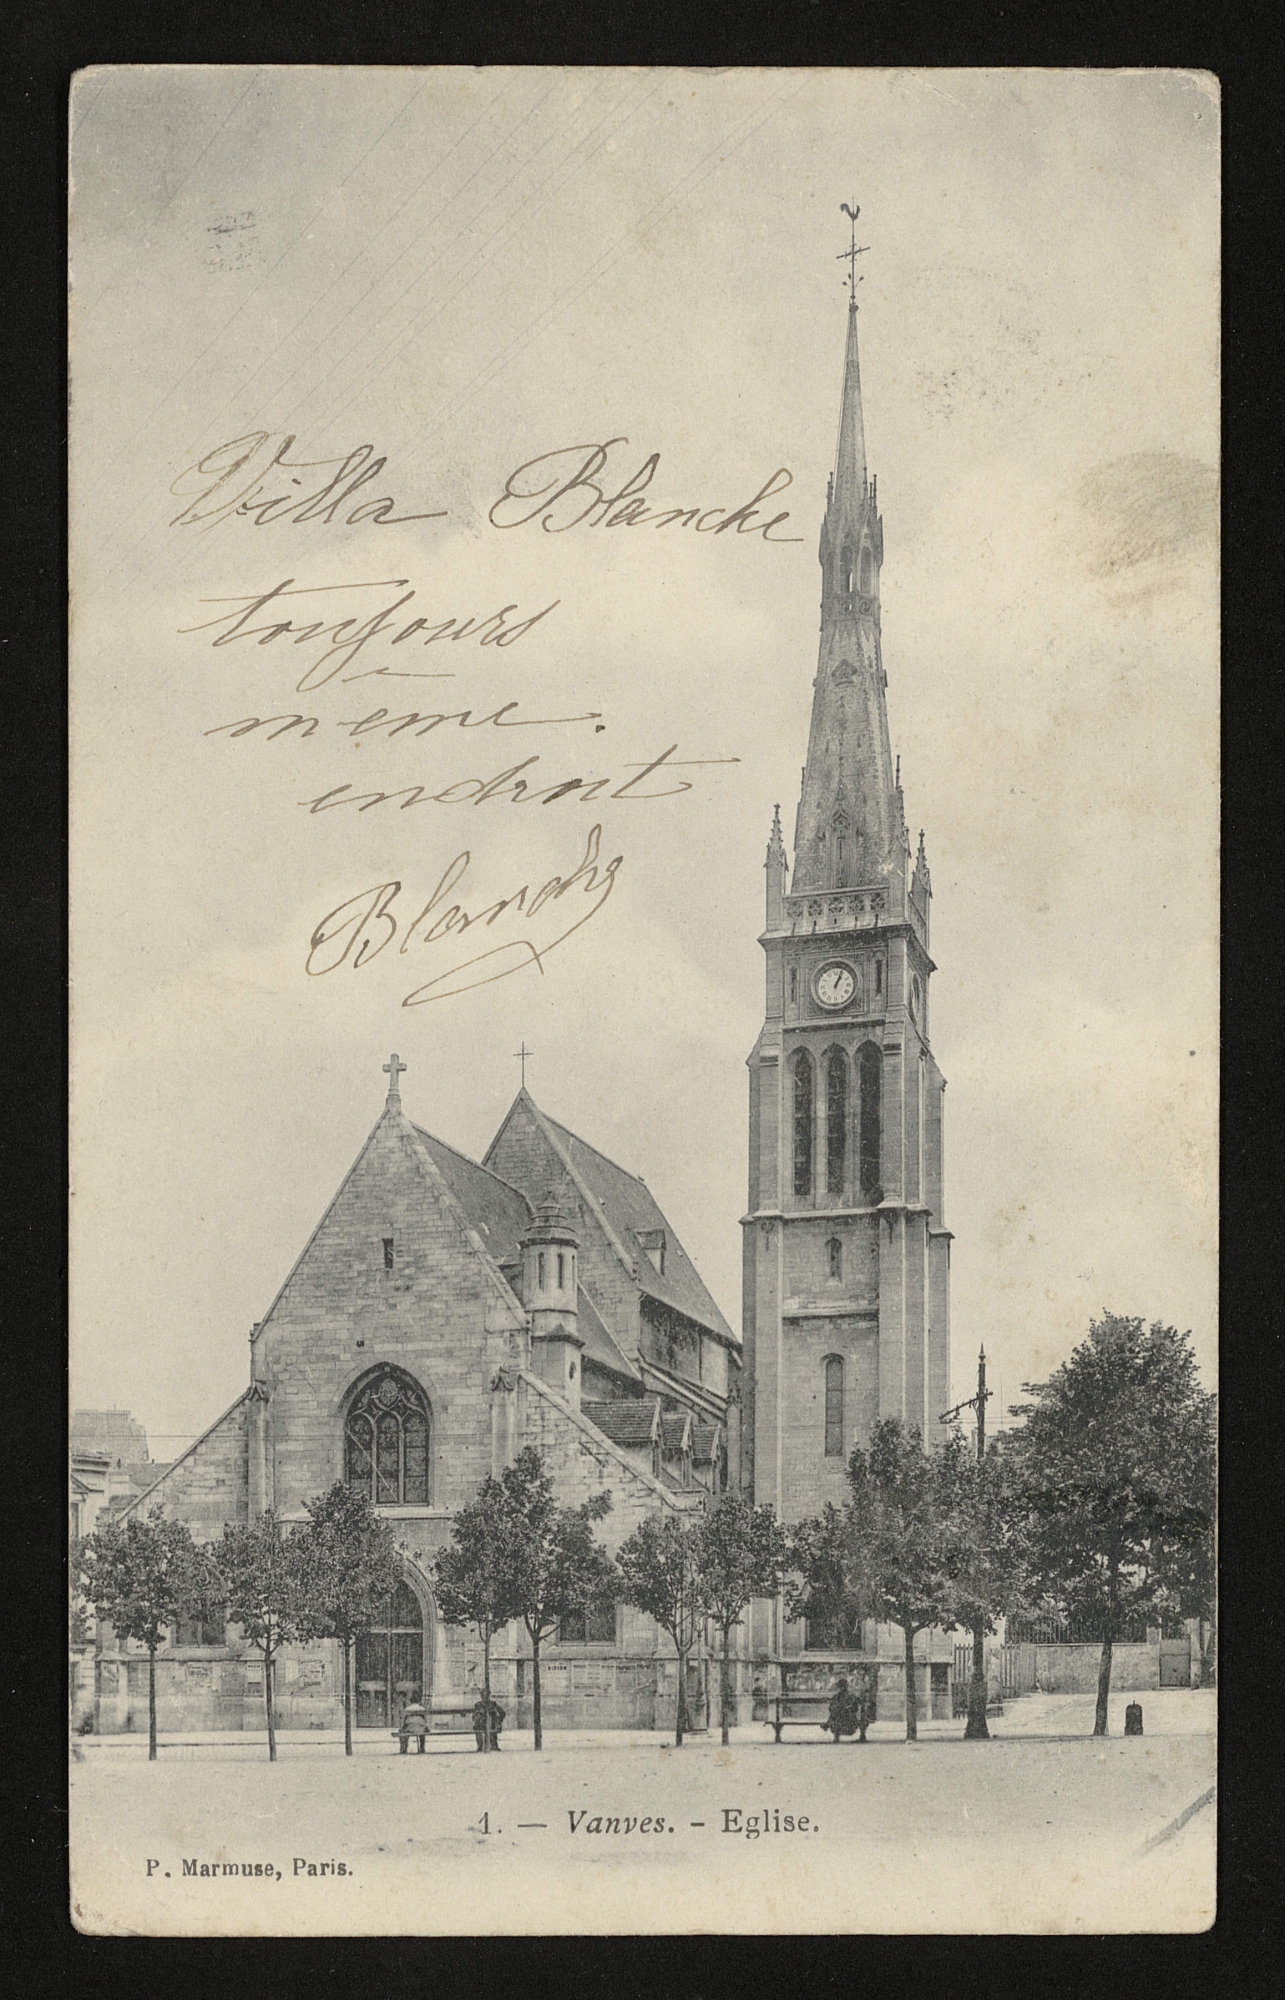 Villa Blanche
toujours
même.
endroit
Blanche
1. — Vanves. - Eglise.
P. Marmuse, Paris.